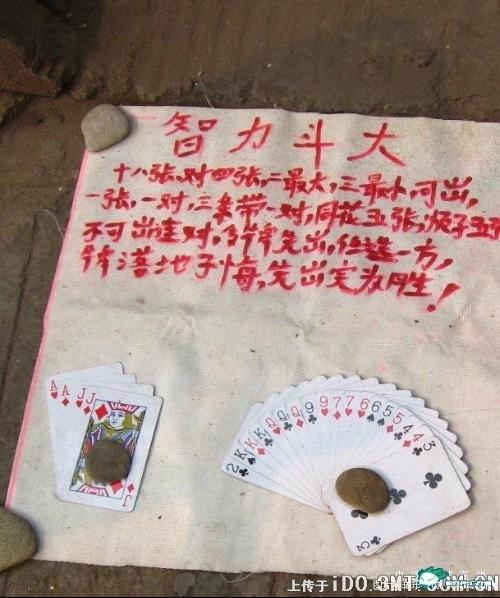 智力斗大
十八张、对四张,二最大,三最小,可出,
一张,一对,三条带一对,同花五张,顺子五
不可出连对,多牌先出,任选一方,
牌落地不悔,先出完为胜!
A A J J
J
2 K K Q Q Q 9 9 7 7 6 6 5 5 4 4 3
3
上传于 iDO.3MT.COM.CN